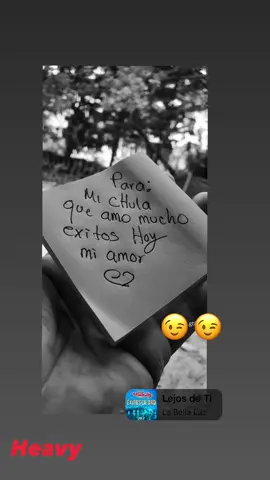 Para:
Mi chula
que amo mucho
exitos Hoy
mi amor
Lejos de Ti
La Bella Luz
Heavy